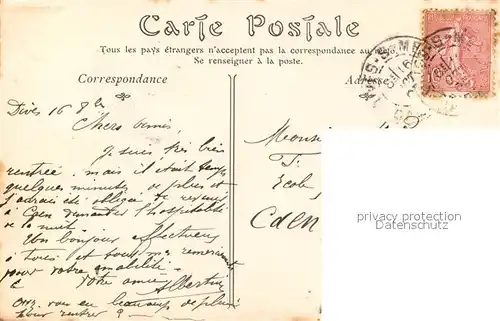 Carte Postale
Tous les pays étrangers n'acceptent pas la correspondance au
Se renseigner à la poste.
Correspondance
Adresse
Dives 16 8bre
Chers amis,
Je suis très bien
rentrée, mais il était temps
quelques minutes de plus et
j'aurais été obligée de
à Caen demander l'hospitalité
de la nuit.
Un bonjour affectueux
à tous et tous mes remerciements
pour votre amabilité.
Votre amie Albertine
avez vous eu beaucoup de pluie
pour rentrer ?
Monsr
Ecole
Caen
privacy protection
Datenschutz